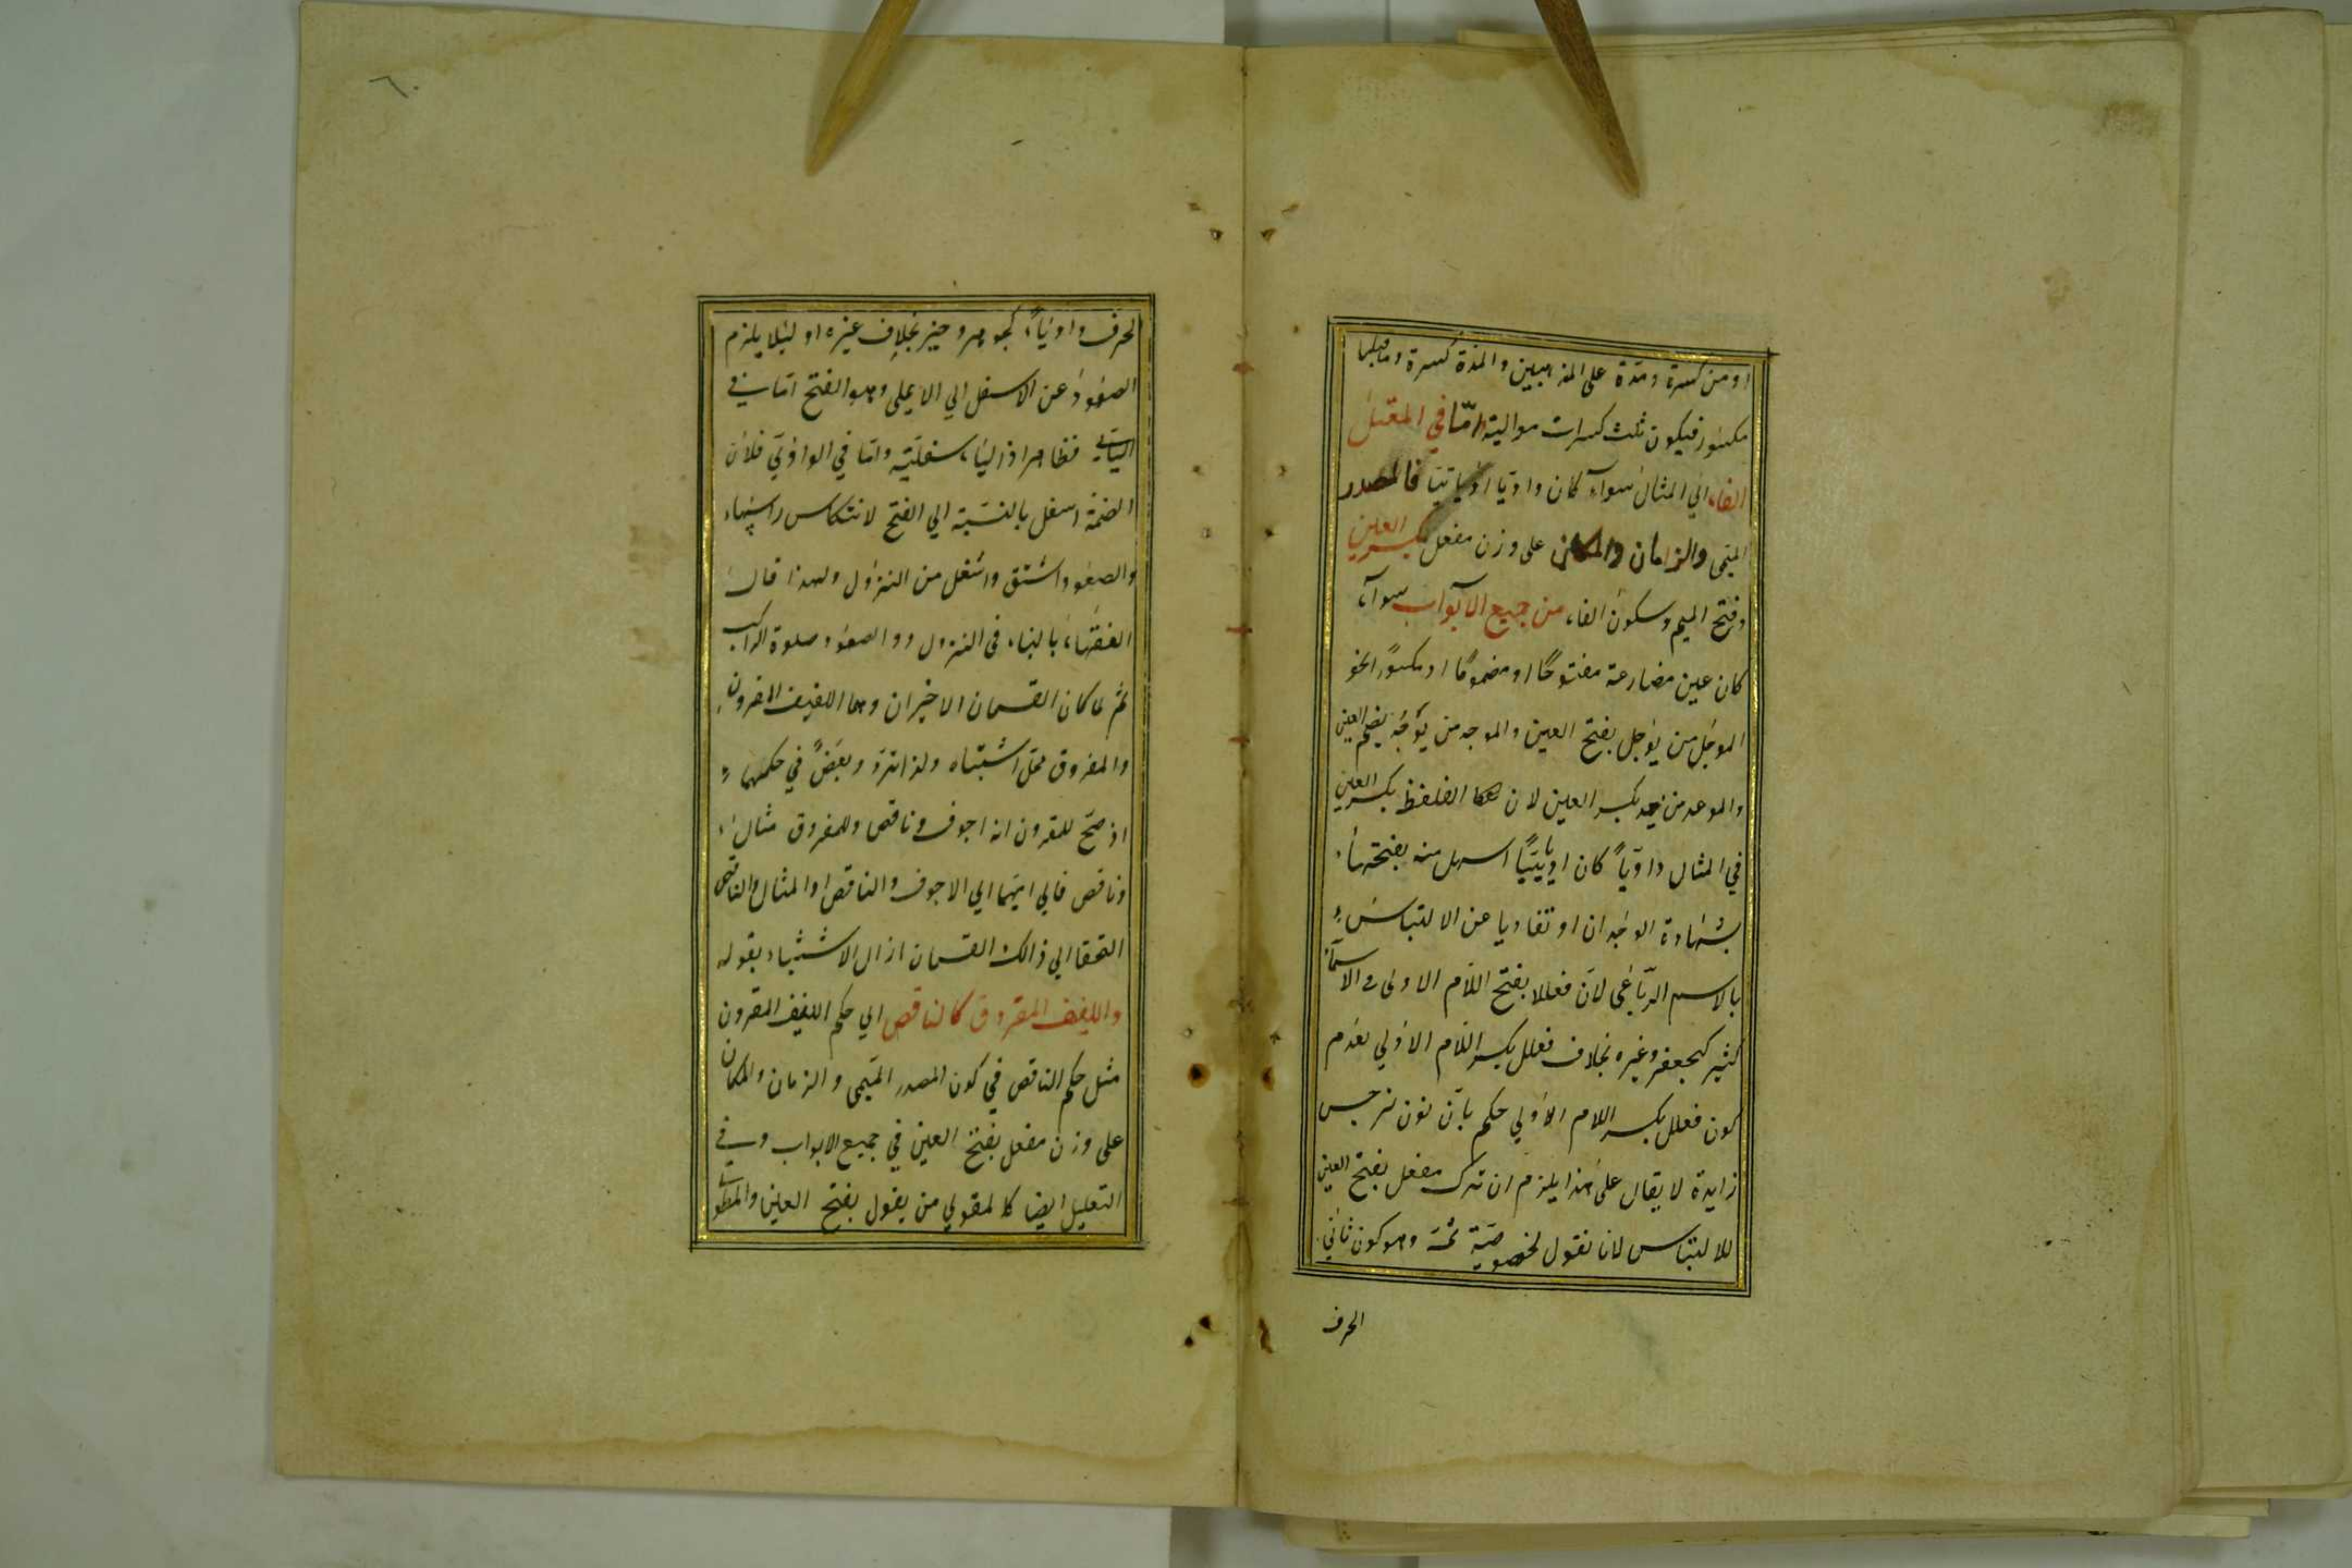 او من كسرة ومدة على المذهبين والمدة كسرة وما قبلها
مكسور فيكون ثلث كسرات موالية امّا في المعتل
الفاء اي المثال سواء كان واويا او يائيا فالمصدر
الميمى والزمان والمكان على وزن مفعل بكسر العين
وفتح الميم وسكون الفاء من جميع الابواب سواء
كان عين مضارعة مفتوحًا او مضمومًا او مكسورًا نحو
الموجل من يوجل بفتح العين والموجه من يوجه بضم العين
والموعد من يعد بكسر العين لان التلفظ بكسر العين
في المثال واويًا كان او يائيًا اسهل منه بفتحتها
بشهادة الوجدان او تفاديا عن الالتباس
بالاسم الرباعى لان فعللا بفتح اللام الاولى فى الاسماء
كثير كجعفر وغيره بخلاف فعلل بكسر اللام الاولي لعدم
كون فعلل بكسر اللام الاولي حكم بان نون نرجس
زايدة لا يقال على هذا يلزم ان ترك مفعل بفتح العين
للالتباس لانا نقول لخصوصية ثمة وهو كون ثاني
الحرف
٦٠
الحرف واو نياء كجوهر وخير بخلاف غيره او ليلا يلزم
الصعود عن الاسفل الي الاعلى وهو الفتح اما في
اليائي فظاهر اذ الياء سفلية واما في الواوي فلان
الضمة اسفل بالنسبة الي الفتح لانتكاس راسها
والصعود اشق واثقل من النزول ولهذا قال
الفقهاء بالبناء فى النزول دو الصعود صلوة الراكب
ثم لما كان القسمان الاخيران وهما اللفيف المقرون
والمفروق محل اشتباه ولذا تردد بعض في حكمهما
اذ صح للمقرون انه اجوف وناقص وللمفروق مثال
وناقص فالي ايهما الي الاجوف والناقص او المثال والناقص
التحقا الي ذالك القسمان ازال الاشتباه بقوله
واللفيف المقروق كالناقص اي حكم اللفيف المقرون
مثل حكم الناقص في كون المصدر الميمى والزمان والمكان
على وزن مفعل بفتح العين في جميع الابواب وفي
التعليل ايضا كالمقولي من يقول بفتح العين والمطو